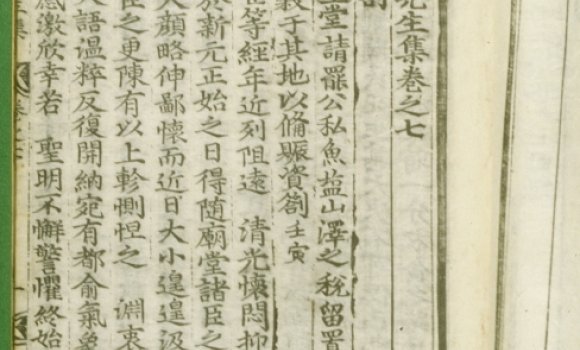 先生集卷之七
堂請罷公私魚盐山澤之稅留置
穀于其地以備賑資劄 壬寅
臣等經年近列阻遠 淸光懷悶抑
於新元正始之日得随廟堂諸臣之
天顔略伸鄙懷而近日大小遑遑汲
臣之更陳有以上軫惻怛之 淵衷
天語溫粹反復開納宛有都俞氣象
感激欣幸若 聖明不懈警懼終始